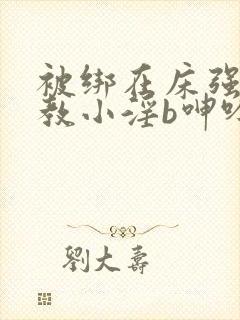 被绑在床强
教小淫b呻吟
劉大壽